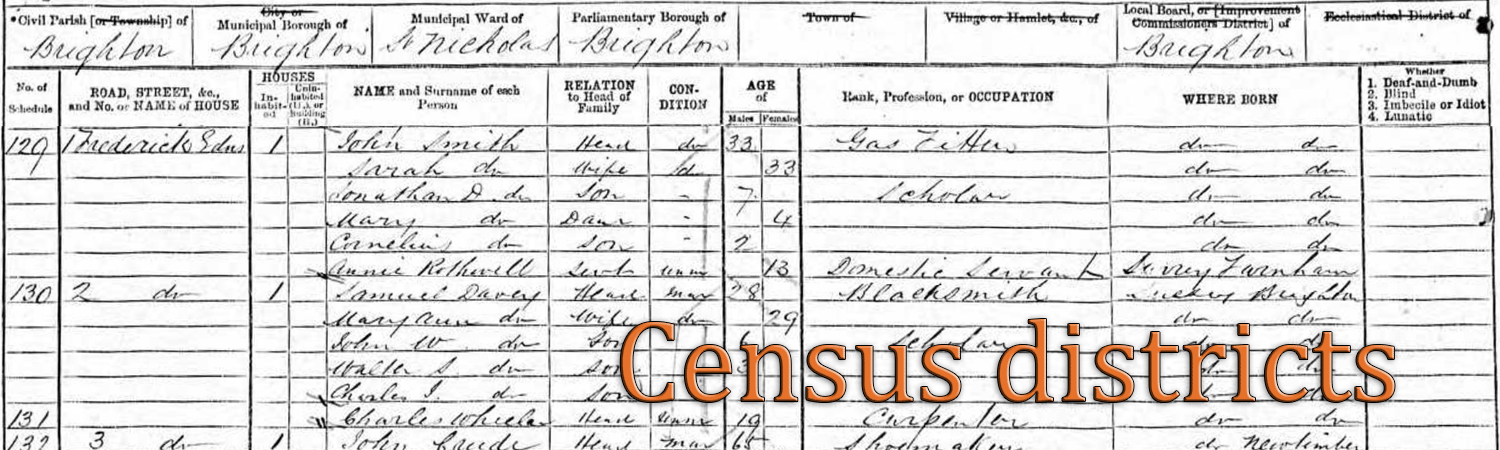 *Civil Parish [or Township] of City or Municipal Borough of Municipal Ward of Parliamentary Borough of Town of Village or Hamlet, &c., of Local Board, or [Improvement Commissioners District] of Ecclesiastical District of
Brighton Brighton St Nicholas Brighton Brighton
No. of Schedule ROAD, STREET, &c., and No. or NAME of HOUSE HOUSES Inhabited Uninhabited (U.), or Building (B.) NAME and Surname of each Person RELATION to Head of Family CONDITION AGE of Males Females Rank, Profession, or OCCUPATION WHERE BORN Whether 1. Deaf-and-Dumb 2. Blind 3. Imbecile or Idiot 4. Lunatic
129 1 Frederick Gdns 1 John Smith Head do 33 Gas Fitter do do
Sarah do Wife do 33 do do
Jonathan D. do Son - 7 Scholar do do
Mary do Daur - 4 do do
Cornelius do Son - 2 do do
Annie Rothwell Servt unm 13 Domestic Servant Surrey Farnham
130 2 do 1 Samuel Davey Head mar 28 Blacksmith Sussex Brighton
Mary Ann do Wife do 29 do do
John W. do Son 6 Scholar do
Walter S. do Son 3 do do
Charles I. do Son
131 Charles Wheeler Head unm 19 Carpenter do do
132 3 do 1 John Head mar 65 Shoemaker do Newtimber
Census districts